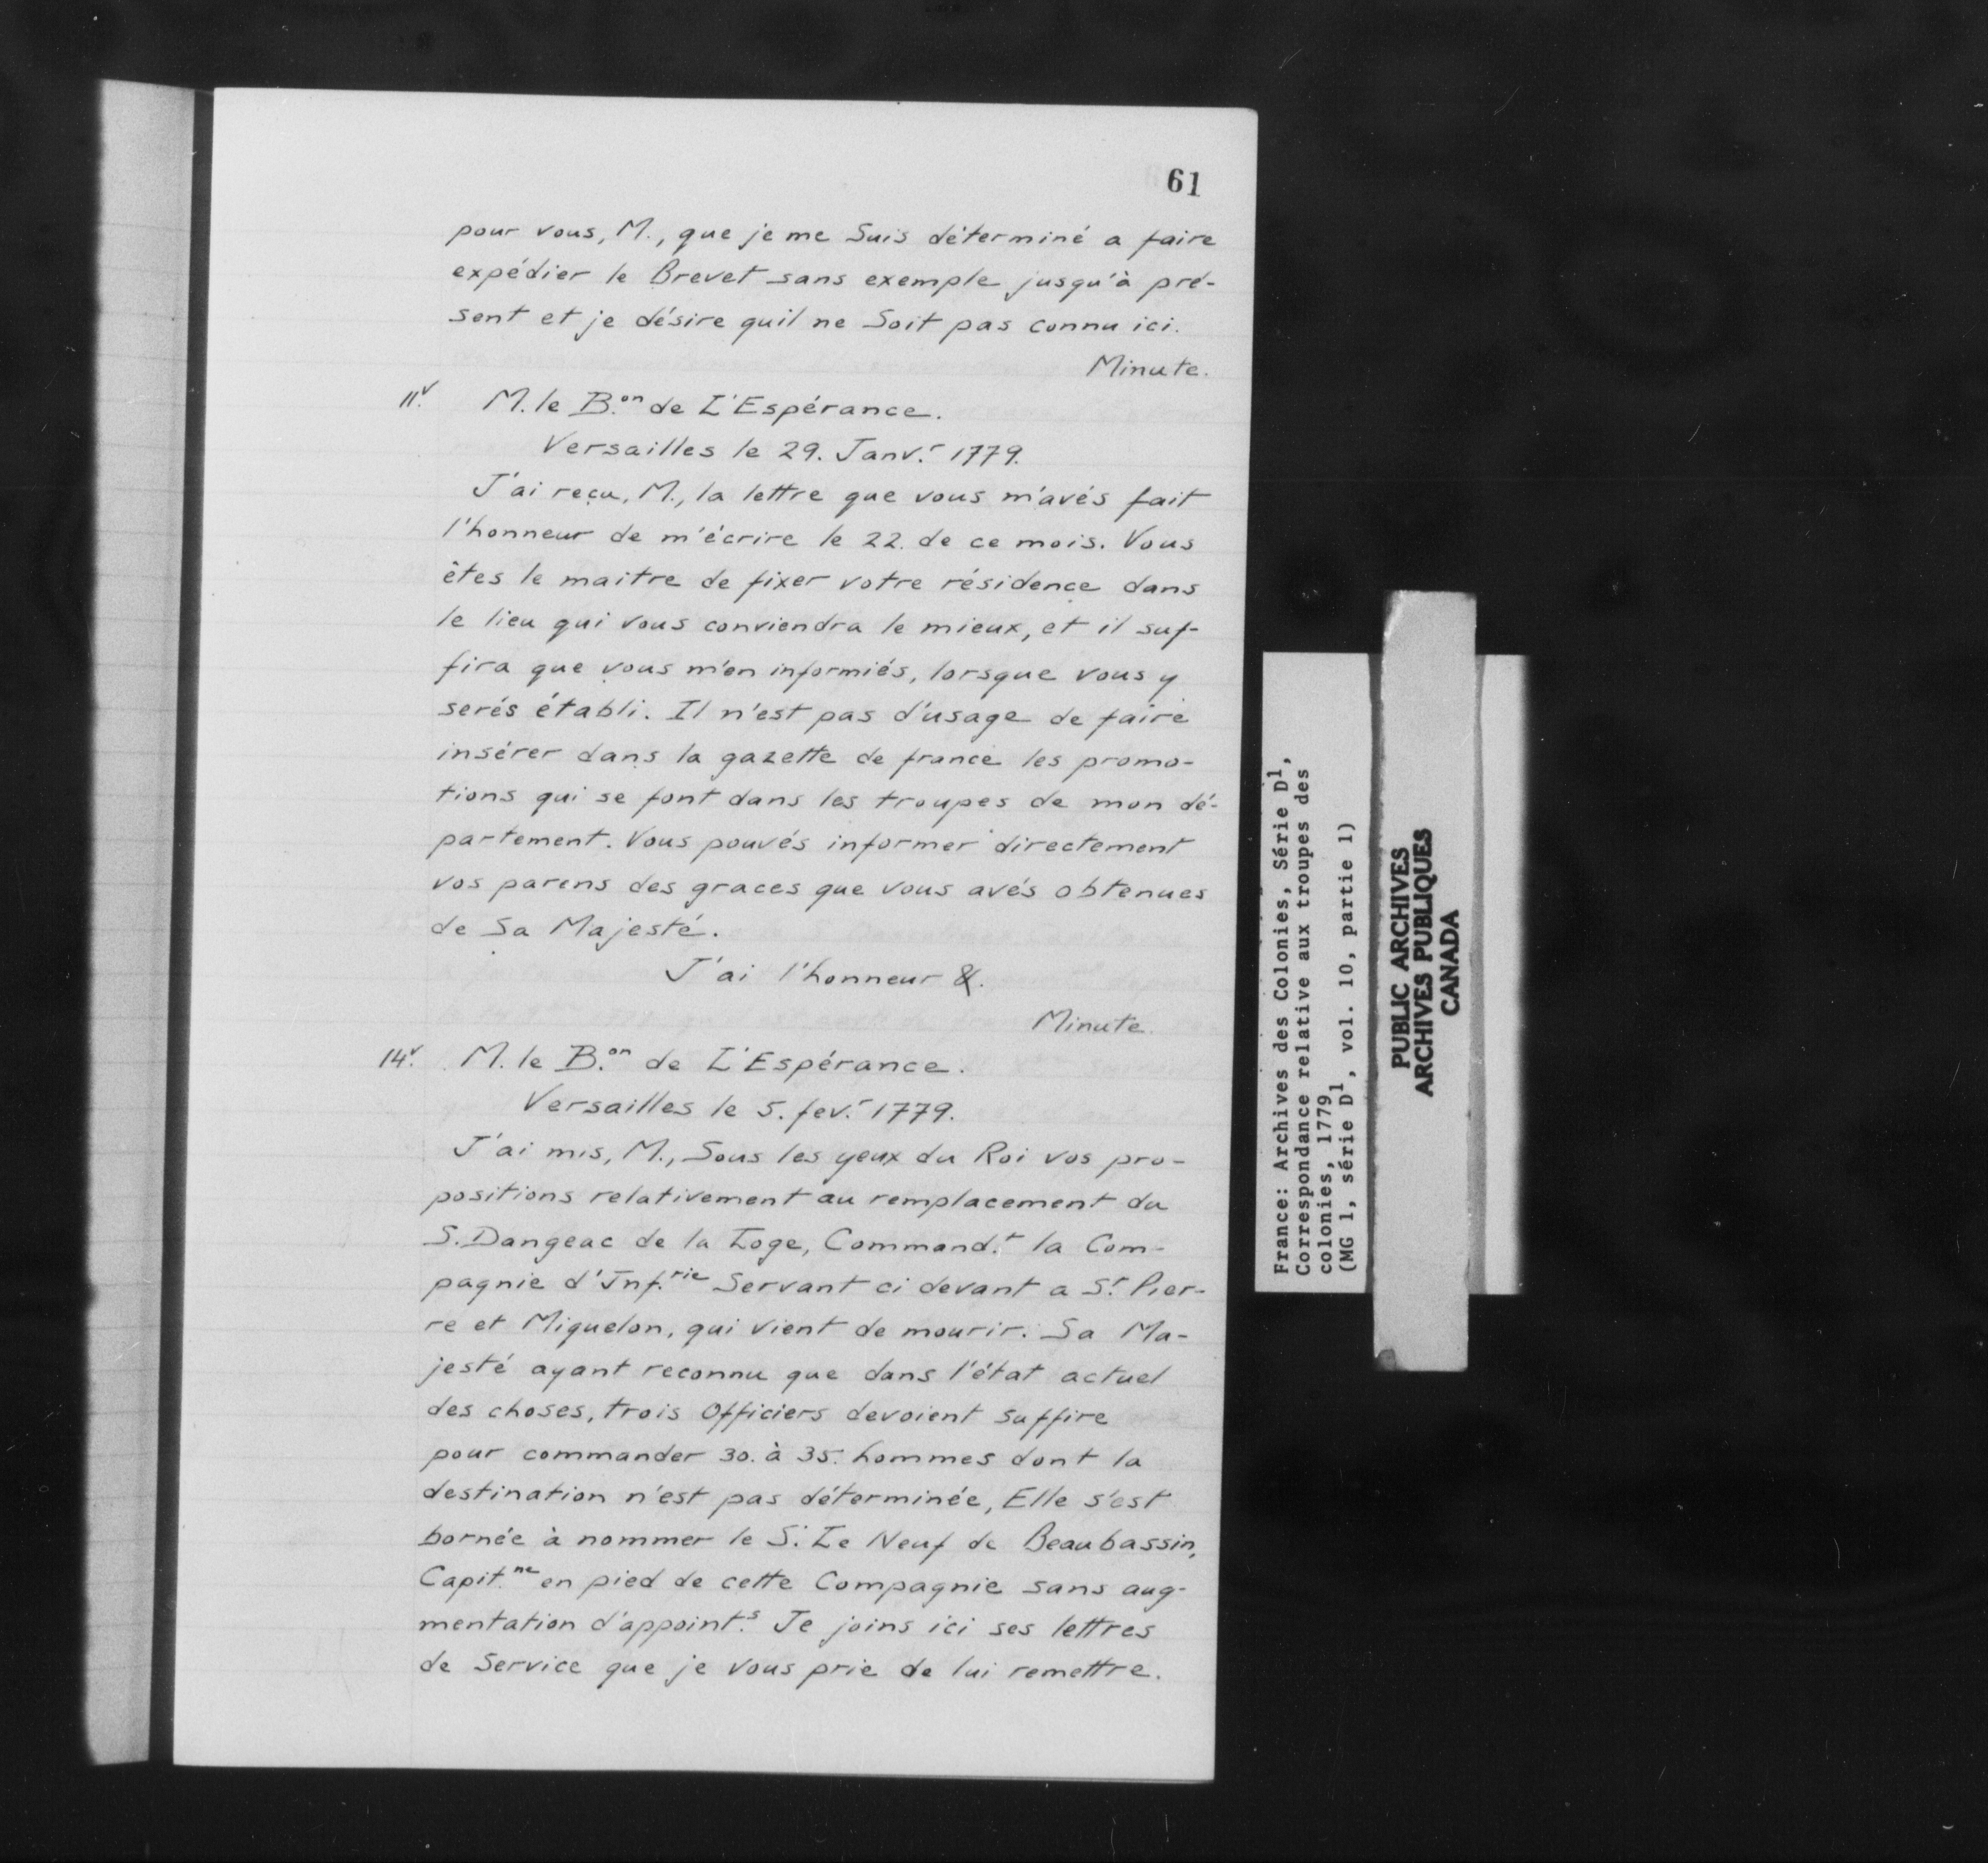 61
pour vous, M., que je me Suis déterminé a faire
expédier le Brevet sans exemple jusqu'à pré-
sent et je désire quil ne Soit pas connu ici.
Minute.
11.v M. le B.on de L'Espérance.
Versailles le 29. Janv.r 1779.
J'ai reçu, M., la lettre que vous m'avés fait
l'honneur de m'écrire le 22. de ce mois. Vous
êtes le maitre de fixer votre résidence dans
le lieu qui vous conviendra le mieux, et il suf-
fira que vous m'en informiés, lorsque vous y
serés établi. Il n'est pas d'usage de faire
insérer dans la gazette de france les promo-
tions qui se font dans les troupes de mon dé-
partement. Vous pouvés informer directement
vos parens des graces que vous avés obtenues
de Sa Majesté.
J'ai l'honneur &.
Minute.
14.v M. le B.on de L'Espérance.
Versailles le 5. fev.r 1779.
J'ai mis, M., Sous les yeux du Roi vos pro-
positions relativement au remplacement du
S. Dangeac de la Loge, Command.t la Com-
pagnie d'Inf.rie Servant ci devant a St. Pier-
re et Miquelon, qui vient de mourir. Sa Ma-
jesté ayant reconnu que dans l'état actuel
des choses, trois Officiers devoient suffire
pour commander 30. à 35. hommes dont la
destination n'est pas déterminée, Elle s'est
bornée à nommer le S. Le Neuf de Beaubassin,
Capit.ne en pied de cette Compagnie sans aug-
mentation d'appoint.s Je joins ici ses lettres
de Service que je vous prie de lui remettre.
France: Archives des Colonies, Série D1,
Correspondance relative aux troupes des
colonies, 1779
(MG 1, série D1, vol. 10, partie 1)
PUBLIC ARCHIVES
ARCHIVES PUBLIQUES
CANADA